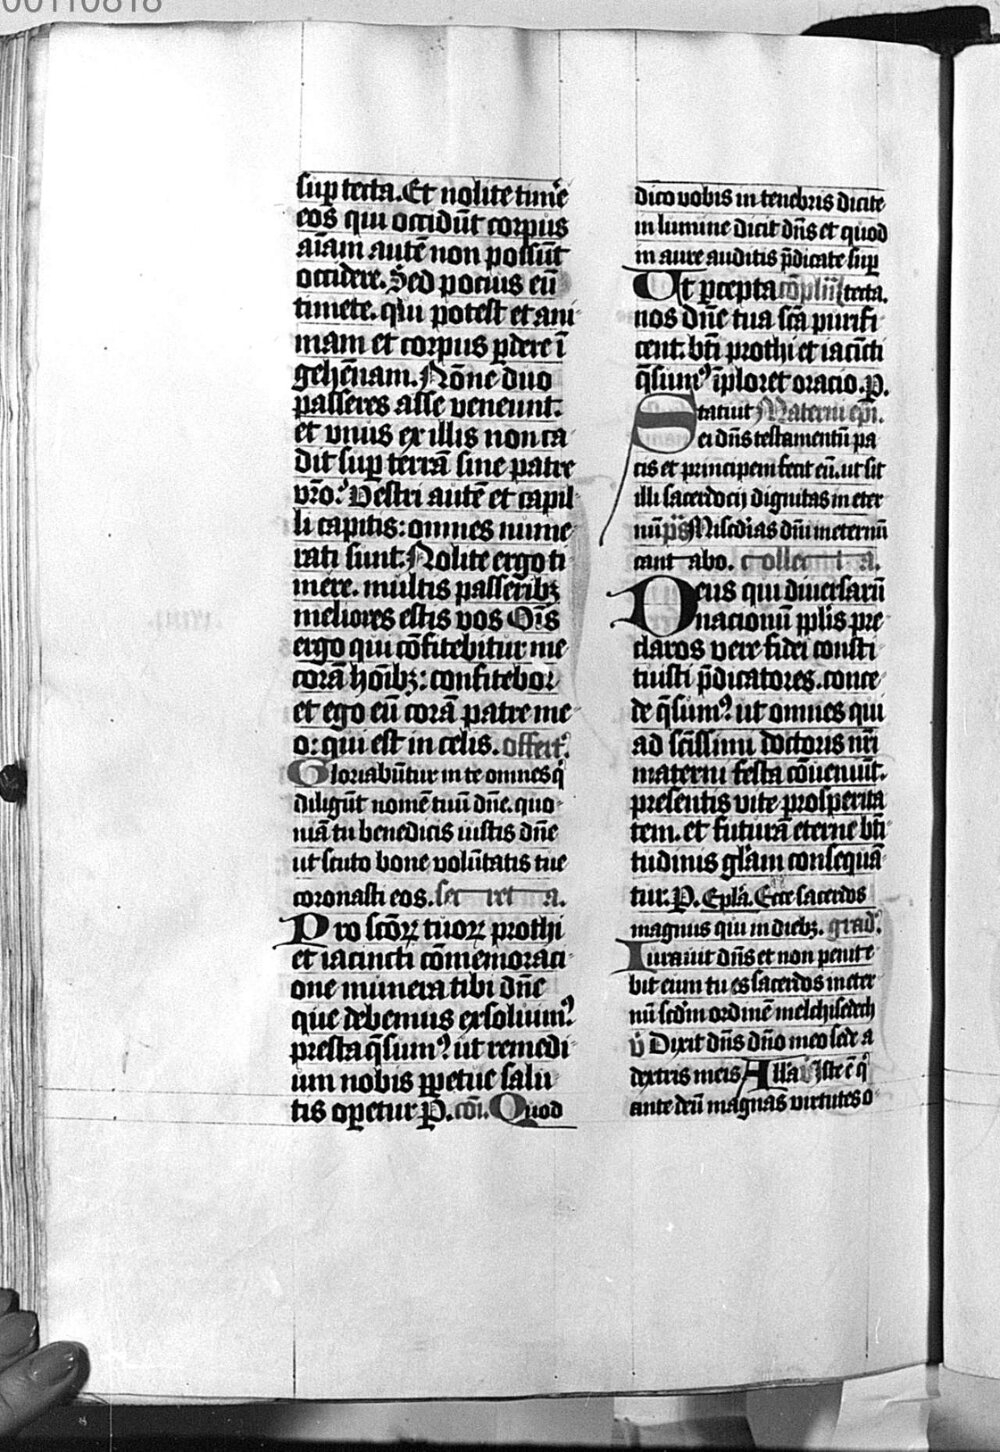 00110818
sup tecta. Et nolite time͛
eos qui occidūt corpus
aīam autē non possūt
occidere. Sed pocius eū
timete. qui potest et ani
mam et corpus ꝑdere ī
gehēnam. Nōne duo
passeres asse veneunt.
et vnus ex illis non ca
dit suꝑ terrā sine patre
vr̄o. Vestri autē et capil
li capitis: omnes nume
rati sunt. Nolite ergo ti
mere. multis passeribꝫ
meliores estis vos Oīs
ergo qui cōfitebitur me
corā hoībꝫ: confitebor
et ego eū corā patre me
o: qui est in celis. offert.
Gloriabūtur in te omnes q̄
diligūt nomē tuū dn̄e. quo
niā tu benedicis iustis dn̄e
ut scuto bone volūtatis tue
coronasti eos. secreta.
Pro scōꝝ tuoꝝ prothi
et iacincti cōmemoraci
one munera tibi dn̄e
que debemus exsoluim᷒
presta q̄sum᷒ ut remedi
um nobis ꝑpetue salu
tis oꝑetur P. cōi. Quod
dico vobis in tenebris dicite
in lumine dicit dn̄s et quod
in aure auditis p̄dicate suꝑ
Ut ꝑcepta cōplīī tecta.
nos dn̄e tua scā purifi
cent. bt̄i prothi et iacīcti
q̄sum᷒ īploret oracio. P.
Statuit Materni ep̄i.
ei dn̄s testamentū pa
cis et principem fecit eū. ut sit
illi sacerdocij dignitas in eter
nū p̄s Misc̄dias dn̄i in eternū
cantabo. collecta.
Deus qui diuersarū
nacionū ppl̄is pre
claros vere fidei consti
tuisti p̄dicatores. conce
de q̄sum᷒ ut omnes qui
ad sc̄issimi doctoris nr̄i
materni festa cōueniūt.
presentis vite prosperita
tem. et futurā eterne bt̄i
tudinis gl̄am consequā
tur. P. Epl̄a. Ecce sacerdos
magnus qui in diebꝫ. grad.
Iurauit dn̄s et non penite
bit eum tu es sacerdos in eter
nū scd̄m ordinē melchisedech
v̄ Dixit dn̄s dn̄o meo sede a
dextris meis All̄a v̄ Iste ē q̄
ante deū magnas virtutes o